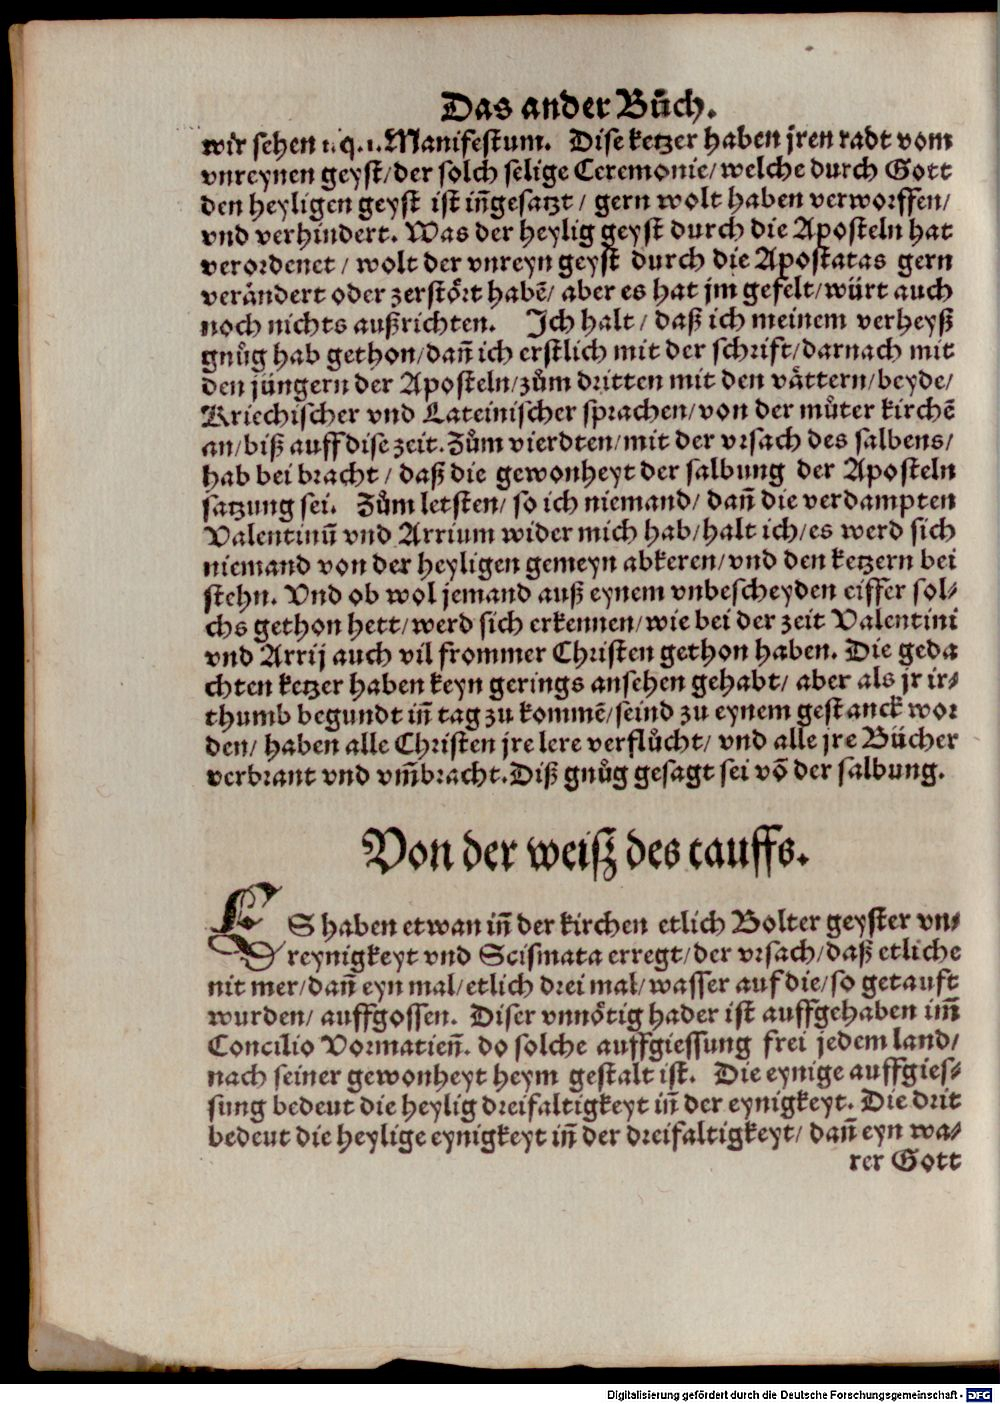 Das ander Bůch.
wir sehen 1. q. 1. Manifestum. Dise ketzer haben jren radt vom
vnreynen geyst/ der solch selige Ceremonie/ welche durch Gott
den heyligen geyst ist iñgesatzt/ gern wolt haben verworffen/
vnd verhindert. Was der heylig geyst durch die Aposteln hat
verordenet/ wolt der vnreyn geyst durch die Apostatas gern
verändert oder zerstört habẽ/ aber es hat jm gefelt/ würt auch
noch nichts außrichten. Ich halt/ daß ich meinem verheyß
gnůg hab gethon/ dañ ich erstlich mit der schrift/ darnach mit
den jüngern der Aposteln/ zům dritten mit den vättern/ beyde/
Kriechischer vnd Lateinischer sprachen/ von der můter kirchẽ
an/ biß auff dise zeit. Zům vierdten/ mit der vrsach des salbens/
hab bei bracht/ daß die gewonheyt der salbung der Aposteln
satzung sei. Zům letsten/ so ich niemand/ dañ die verdampten
Valentinũ vnd Arrium wider mich hab/ halt ich/ es werd sich
niemand von der heyligen gemeyn abkeren/ vnd den ketzern bei
stehn. Vnd ob wol jemand auß eynem vnbescheyden eiffer sol-
chs gethon hett/ werd sich erkennen/ wie bei der zeit Valentini
vnd Arrij auch vil frommer Christen gethon haben. Die geda
chten ketzer haben keyn gerings ansehen gehabt/ aber als jr ir-
thumb begundt iñ tag zu kommẽ/ seind zu eynem gestanck wor
den/ haben alle Christen jre lere verflůcht/ vnd alle jre Bücher
verbrant vnd vm̃bracht. Diß gnůg gesagt sei võ der salbung.
Von der weisz des tauffs.
ES haben etwan iñ der kirchen etlich Bolter geyster vn-
reynigkeyt vnd Scismata erregt/ der vrsach/ daß etliche
nit mer/ dañ eyn mal/ etlich drei mal/ wasser auf die/ so getauft
wurden/ auffgossen. Diser vnnötig hader ist auffgehaben im̃
Concilio Vormatieñ. do solche auffgiessung frei jedem land/
nach seiner gewonheyt heym gestalt ist. Die eynige auffgies-
sung bedeut die heylig dreifaltigkeyt iñ der eynigkeyt. Die drit
bedeut die heylige eynigkeyt iñ der dreifaltigkeyt/ dañ eyn wa-
rer Gott
Digitalisierung gefördert durch die Deutsche Forschungsgemeinschaft - DFG